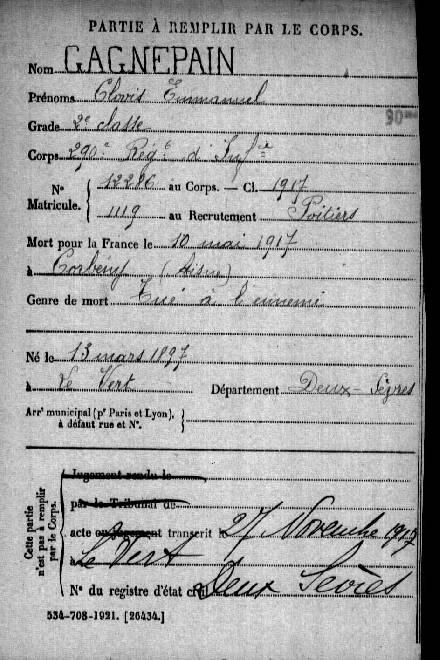 PARTIE À REMPLIR PAR LE CORPS.
Nom GAGNEPAIN
Prénoms Clovis Emmanuel
90
Grade 2e classe
Corps 290e Régt d'Infie
No Matricule. { 12286 au Corps. — Cl. 1917
1119 au Recrutement Poitiers
Mort pour la France le 10 mai 1917
à Corbény (Aisne)
Genre de mort Tué à l'ennemi
Né le 13 mars 1897
à Le Vert Département Deux-Sèvres
Arrt municipal (pr Paris et Lyon),
à défaut rue et No.
Cette partie
n'est pas à remplir
par le Corps.
Jugement rendu le
par le Tribunal de
acte ou jugement transcrit le 27 Novembre 1917
à Le Vert
No du registre d'état civil Deux Sèvres
534-708-1921. [26434.]